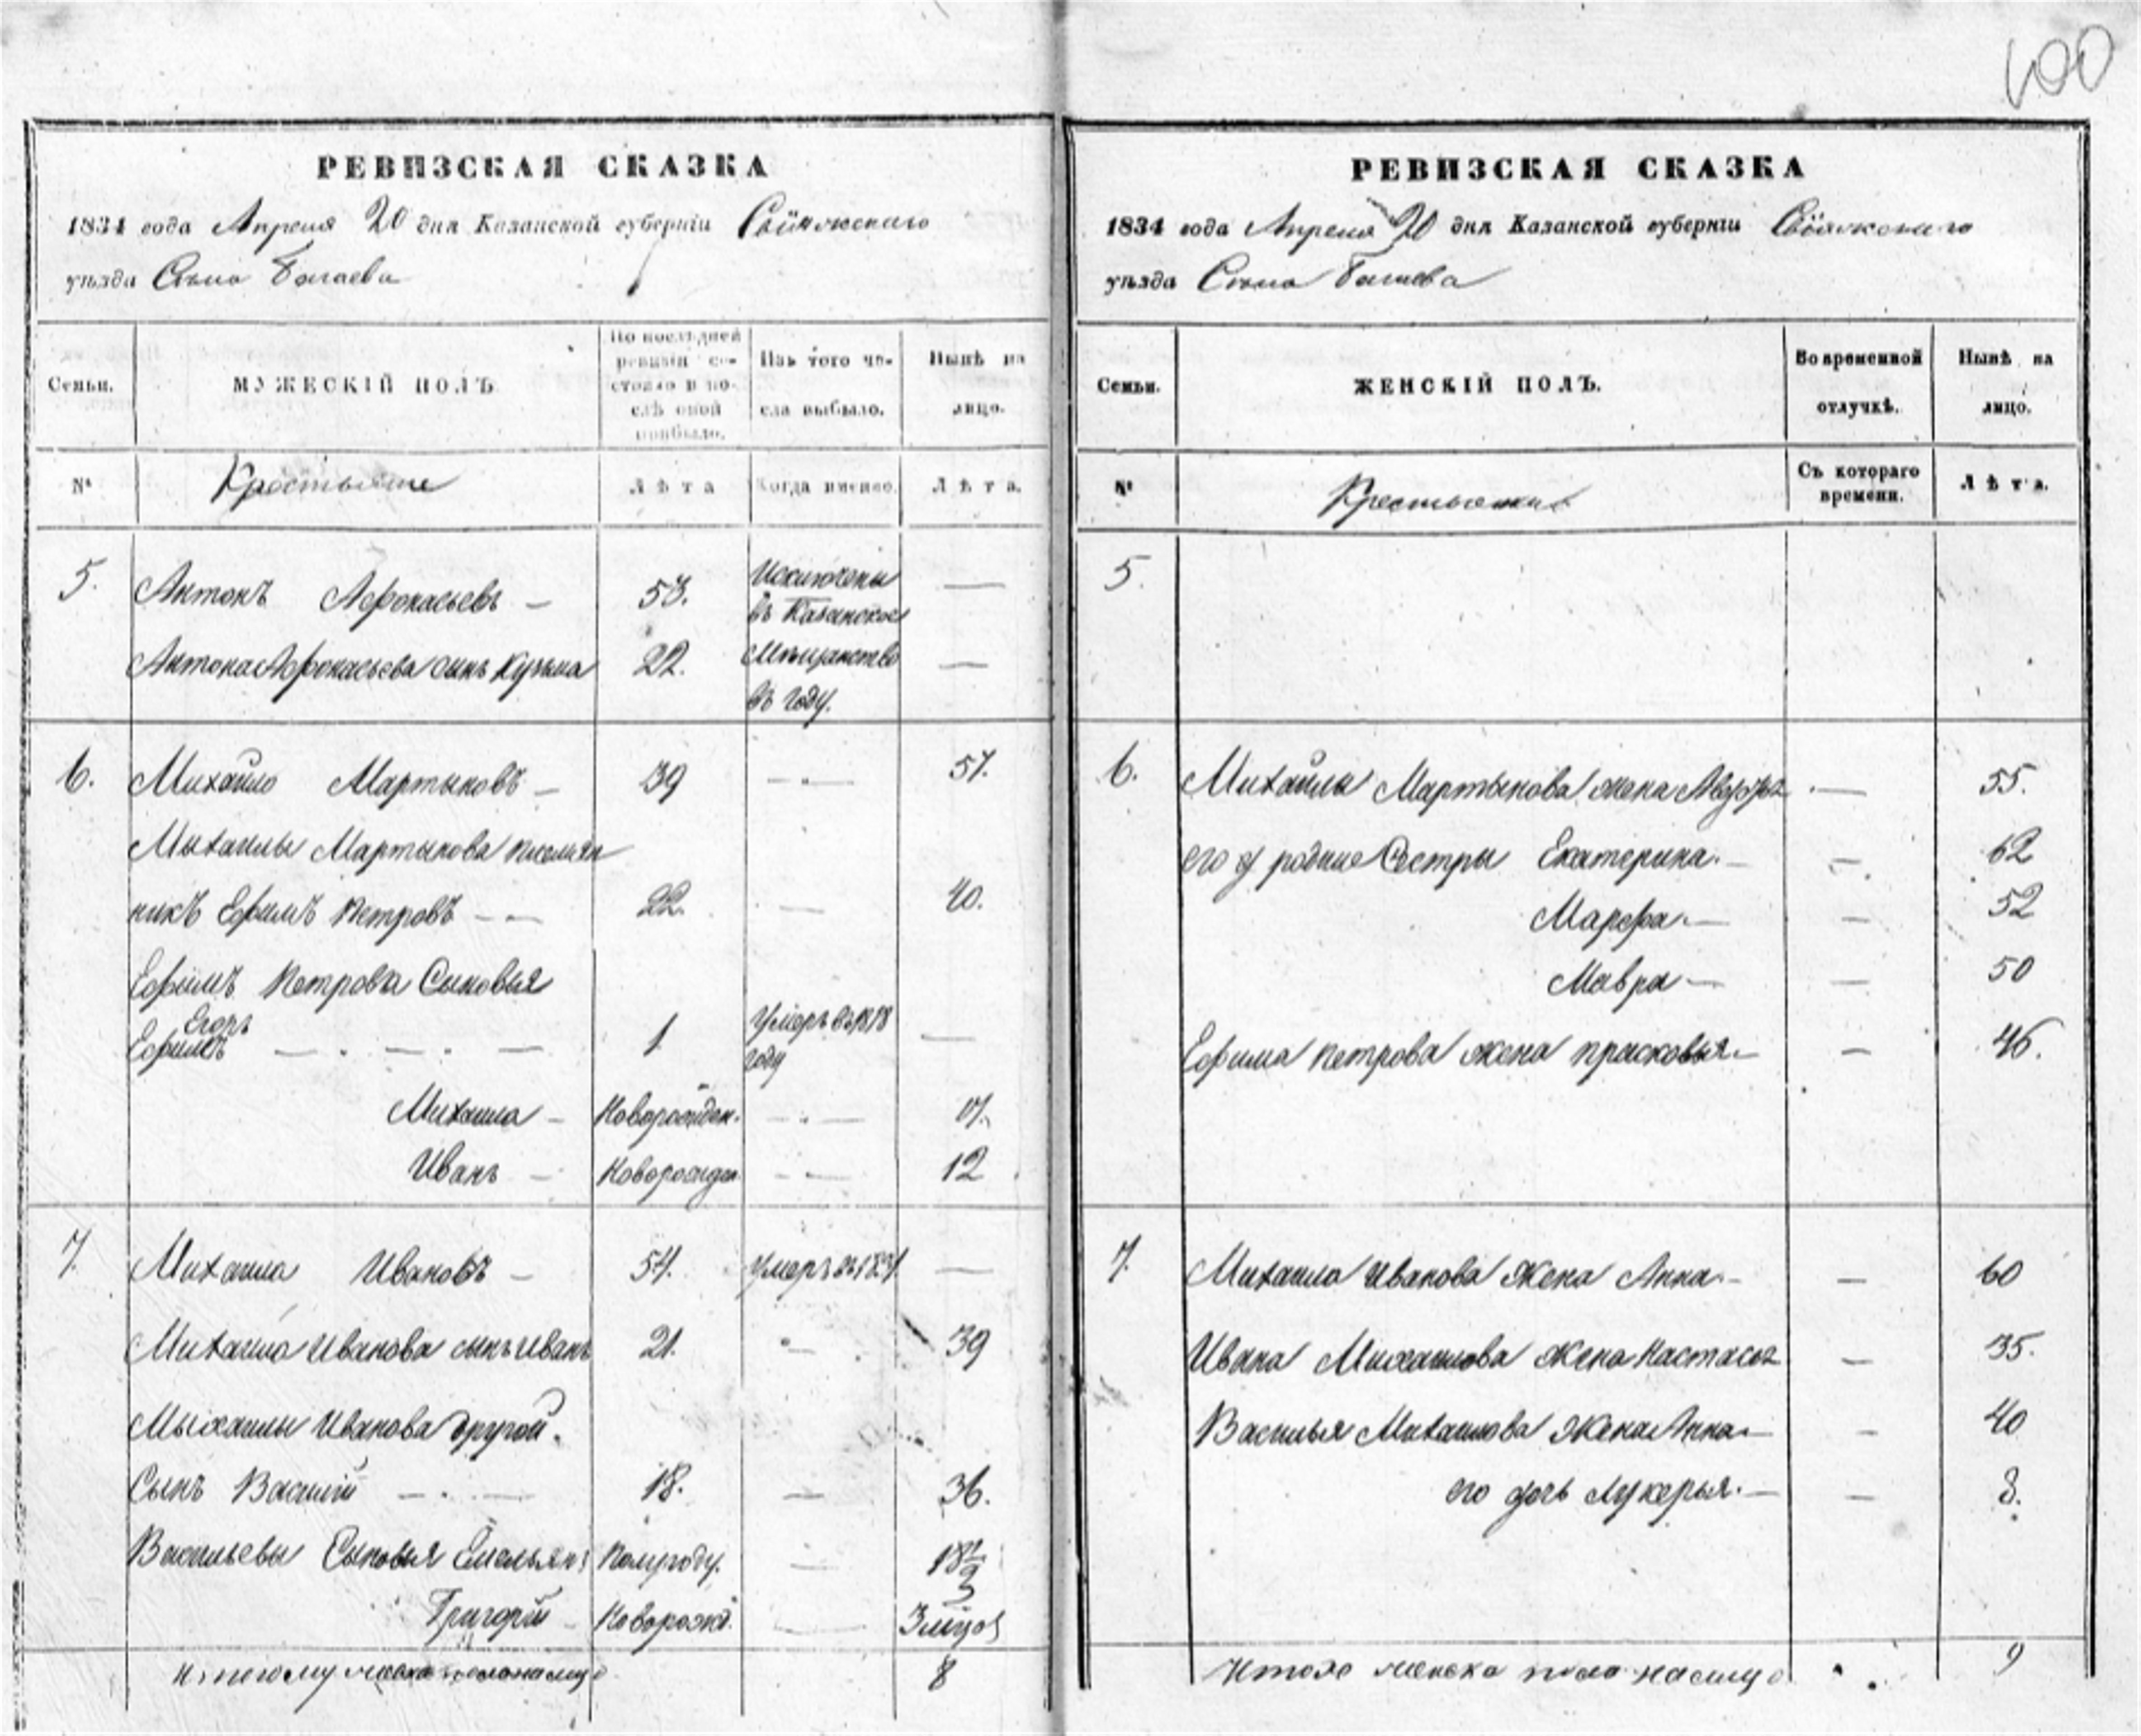 100
РЕВИЗСКАЯ СКАЗКА
1834 года Апреля 20 дня Казанской губернiи Свiяжскаго
уѣзда Села Багаева
Семьи.
МУЖЕСКIЙ ПОЛЪ.
По послѣдней ревизiи состояло и послѣ оной прибыло.
Изъ того числа выбыло.
Нынѣ на лицо.
№
Крестьяне
Лѣта
Когда именно.
Лѣта.
5. Антонъ Афонасьевъ — 53. Исключены —
въ Казанское
Антона Афонасьева сынъ Кузьма 22. Мѣщанство —
въ году.
6. Михайло Мартыновъ — 39 — 57.
Михайлы Мартынова племян
никъ Ефимъ Петровъ — 22. — 40.
Ефимъ Петрова Сыновья
Егоръ
Ефимъ — 1 Умеръ въ 1818 —
году
Михаила — Новорожден. — 17.
Иванъ — Новорожден — 12
7. Михаила Ивановъ — 54. Умеръ въ —
Михаила Иванова сынъ Иванъ 21. — 39
Михаилы Иванова другой
Сынъ Василiй — 18. — 36.
Васильевы Сыновья Емельянъ Полугоду. — 18½
Григорiй — Новорожд. — 3
Итого мужеска пола на лицо 8
РЕВИЗСКАЯ СКАЗКА
1834 года Апреля 20 дня Казанской губернiи Свiяжскаго
уѣзда Села Багаева
Семьи.
ЖЕНСКIЙ ПОЛЪ.
Во временной отлучкѣ.
Нынѣ на лицо.
№
Крестьянки
Съ котораго времени.
Лѣта.
5.
6. Михайлы Мартынова жена — 55.
его родные Сестры Екатерина. — 62
Марфа — 52
Мавра — 50
Ефима Петрова жена Прасковья — 46.
7. Михаила Иванова Жена Анна — 60
Ивана Михаилова Жена Настасья — 35.
Василья Михаилова Жена Анна — 40
его дочь Лукерья. — 8.
Итого женска пола на лицо 9